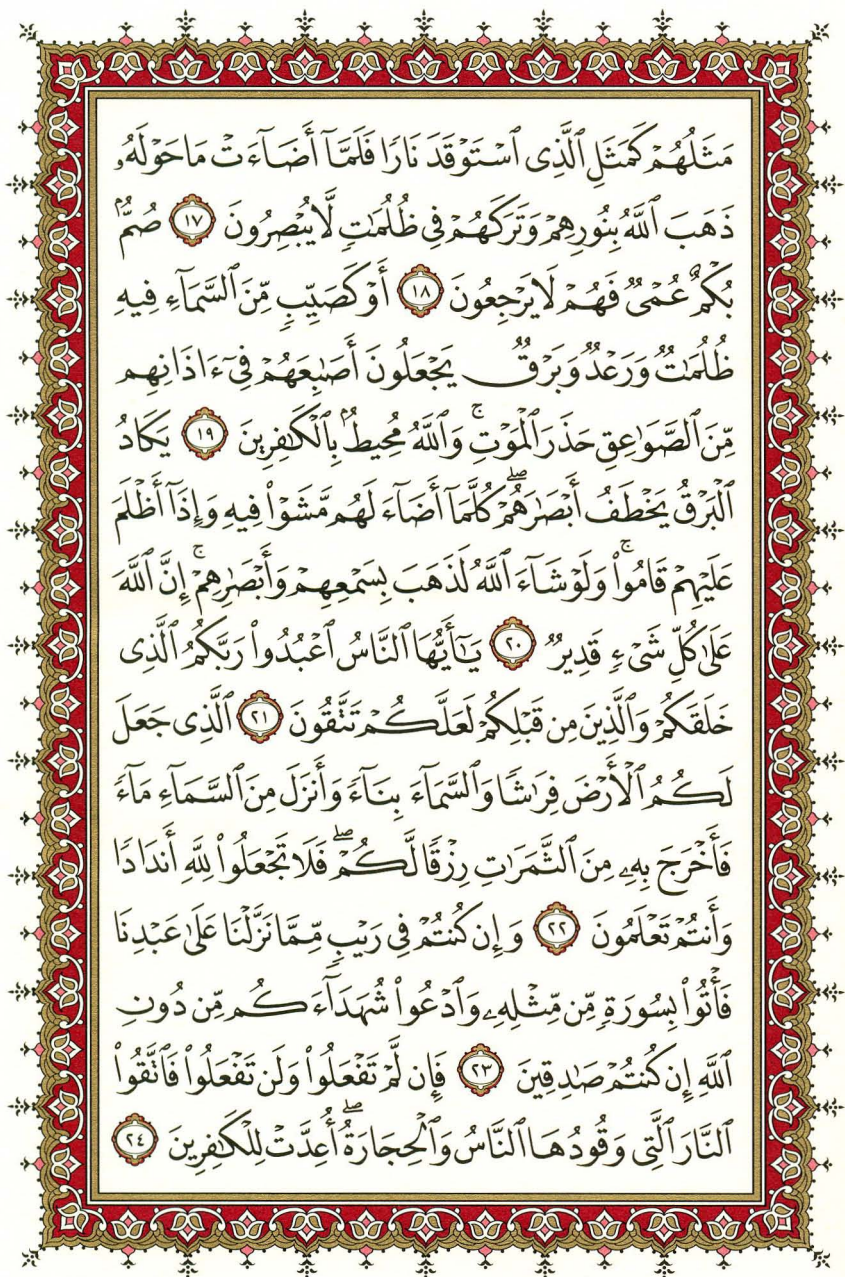 مَثَلُهُمْ كَمَثَلِ ٱلَّذِى ٱسْتَوْقَدَ نَارًا فَلَمَّآ أَضَآءَتْ مَا حَوْلَهُۥ
ذَهَبَ ٱللَّهُ بِنُورِهِمْ وَتَرَكَهُمْ فِى ظُلُمَٰتٍ لَّا يُبْصِرُونَ ١٧ صُمٌّۢ
بُكْمٌ عُمْىٌ فَهُمْ لَا يَرْجِعُونَ ١٨ أَوْ كَصَيِّبٍ مِّنَ ٱلسَّمَآءِ فِيهِ
ظُلُمَٰتٌ وَرَعْدٌ وَبَرْقٌ يَجْعَلُونَ أَصَٰبِعَهُمْ فِىٓ ءَاذَانِهِم
مِّنَ ٱلصَّوَٰعِقِ حَذَرَ ٱلْمَوْتِ ۚ وَٱللَّهُ مُحِيطٌۢ بِٱلْكَٰفِرِينَ ١٩ يَكَادُ
ٱلْبَرْقُ يَخْطَفُ أَبْصَٰرَهُمْ ۖ كُلَّمَآ أَضَآءَ لَهُم مَّشَوْا۟ فِيهِ وَإِذَآ أَظْلَمَ
عَلَيْهِمْ قَامُوا۟ ۚ وَلَوْ شَآءَ ٱللَّهُ لَذَهَبَ بِسَمْعِهِمْ وَأَبْصَٰرِهِمْ ۚ إِنَّ ٱللَّهَ
عَلَىٰ كُلِّ شَىْءٍ قَدِيرٌ ٢٠ يَٰٓأَيُّهَا ٱلنَّاسُ ٱعْبُدُوا۟ رَبَّكُمُ ٱلَّذِى
خَلَقَكُمْ وَٱلَّذِينَ مِن قَبْلِكُمْ لَعَلَّكُمْ تَتَّقُونَ ٢١ ٱلَّذِى جَعَلَ
لَكُمُ ٱلْأَرْضَ فِرَٰشًا وَٱلسَّمَآءَ بِنَآءً وَأَنزَلَ مِنَ ٱلسَّمَآءِ مَآءً
فَأَخْرَجَ بِهِۦ مِنَ ٱلثَّمَرَٰتِ رِزْقًا لَّكُمْ ۖ فَلَا تَجْعَلُوا۟ لِلَّهِ أَندَادًا
وَأَنتُمْ تَعْلَمُونَ ٢٢ وَإِن كُنتُمْ فِى رَيْبٍ مِّمَّا نَزَّلْنَا عَلَىٰ عَبْدِنَا
فَأْتُوا۟ بِسُورَةٍ مِّن مِّثْلِهِۦ وَٱدْعُوا۟ شُهَدَآءَكُم مِّن دُونِ
ٱللَّهِ إِن كُنتُمْ صَٰدِقِينَ ٢٣ فَإِن لَّمْ تَفْعَلُوا۟ وَلَن تَفْعَلُوا۟ فَٱتَّقُوا۟
ٱلنَّارَ ٱلَّتِى وَقُودُهَا ٱلنَّاسُ وَٱلْحِجَارَةُ ۖ أُعِدَّتْ لِلْكَٰفِرِينَ ٢٤